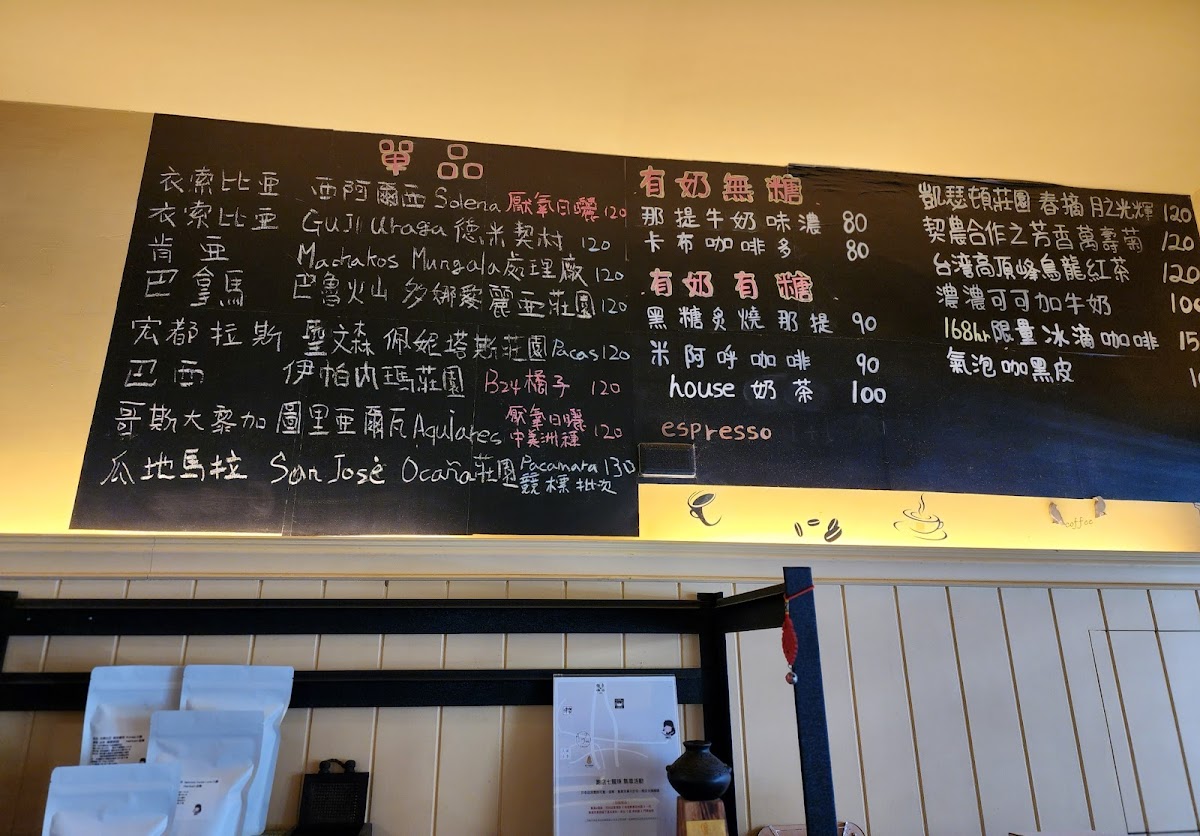 單品
衣索比亞 西阿爾西 Solena 厭氧日曬 120
衣索比亞 Guji Uraga 德米契村 120
肯亞 Machakos Mungala 處理廠 120
巴拿馬 巴魯火山 多娜愛麗亞莊園 120
宏都拉斯 聖文森 佩妮塔斯莊園 Pacas 120
巴西 伊帕內瑪莊園 B24橘子 120
哥斯大黎加 圖里亞爾瓦 Aquiares 厭氧日曬 中美洲種 120
瓜地馬拉 San José Ocaña 莊園 Pacamara 競標批次 130
有奶無糖
那提牛奶味濃 80
卡布咖啡多 80
有奶有糖
黑糖炙燒那提 90
米阿呼咖啡 90
house 奶茶 100
espresso
凱瑟頓莊園 春摘 月之光輝 120
契農合作之芳香萬壽菊 120
台湾高頂峰烏龍紅茶 120
濃濃可可加牛奶
168hr限量冰滴咖啡
氣泡咖黑皮
coffee